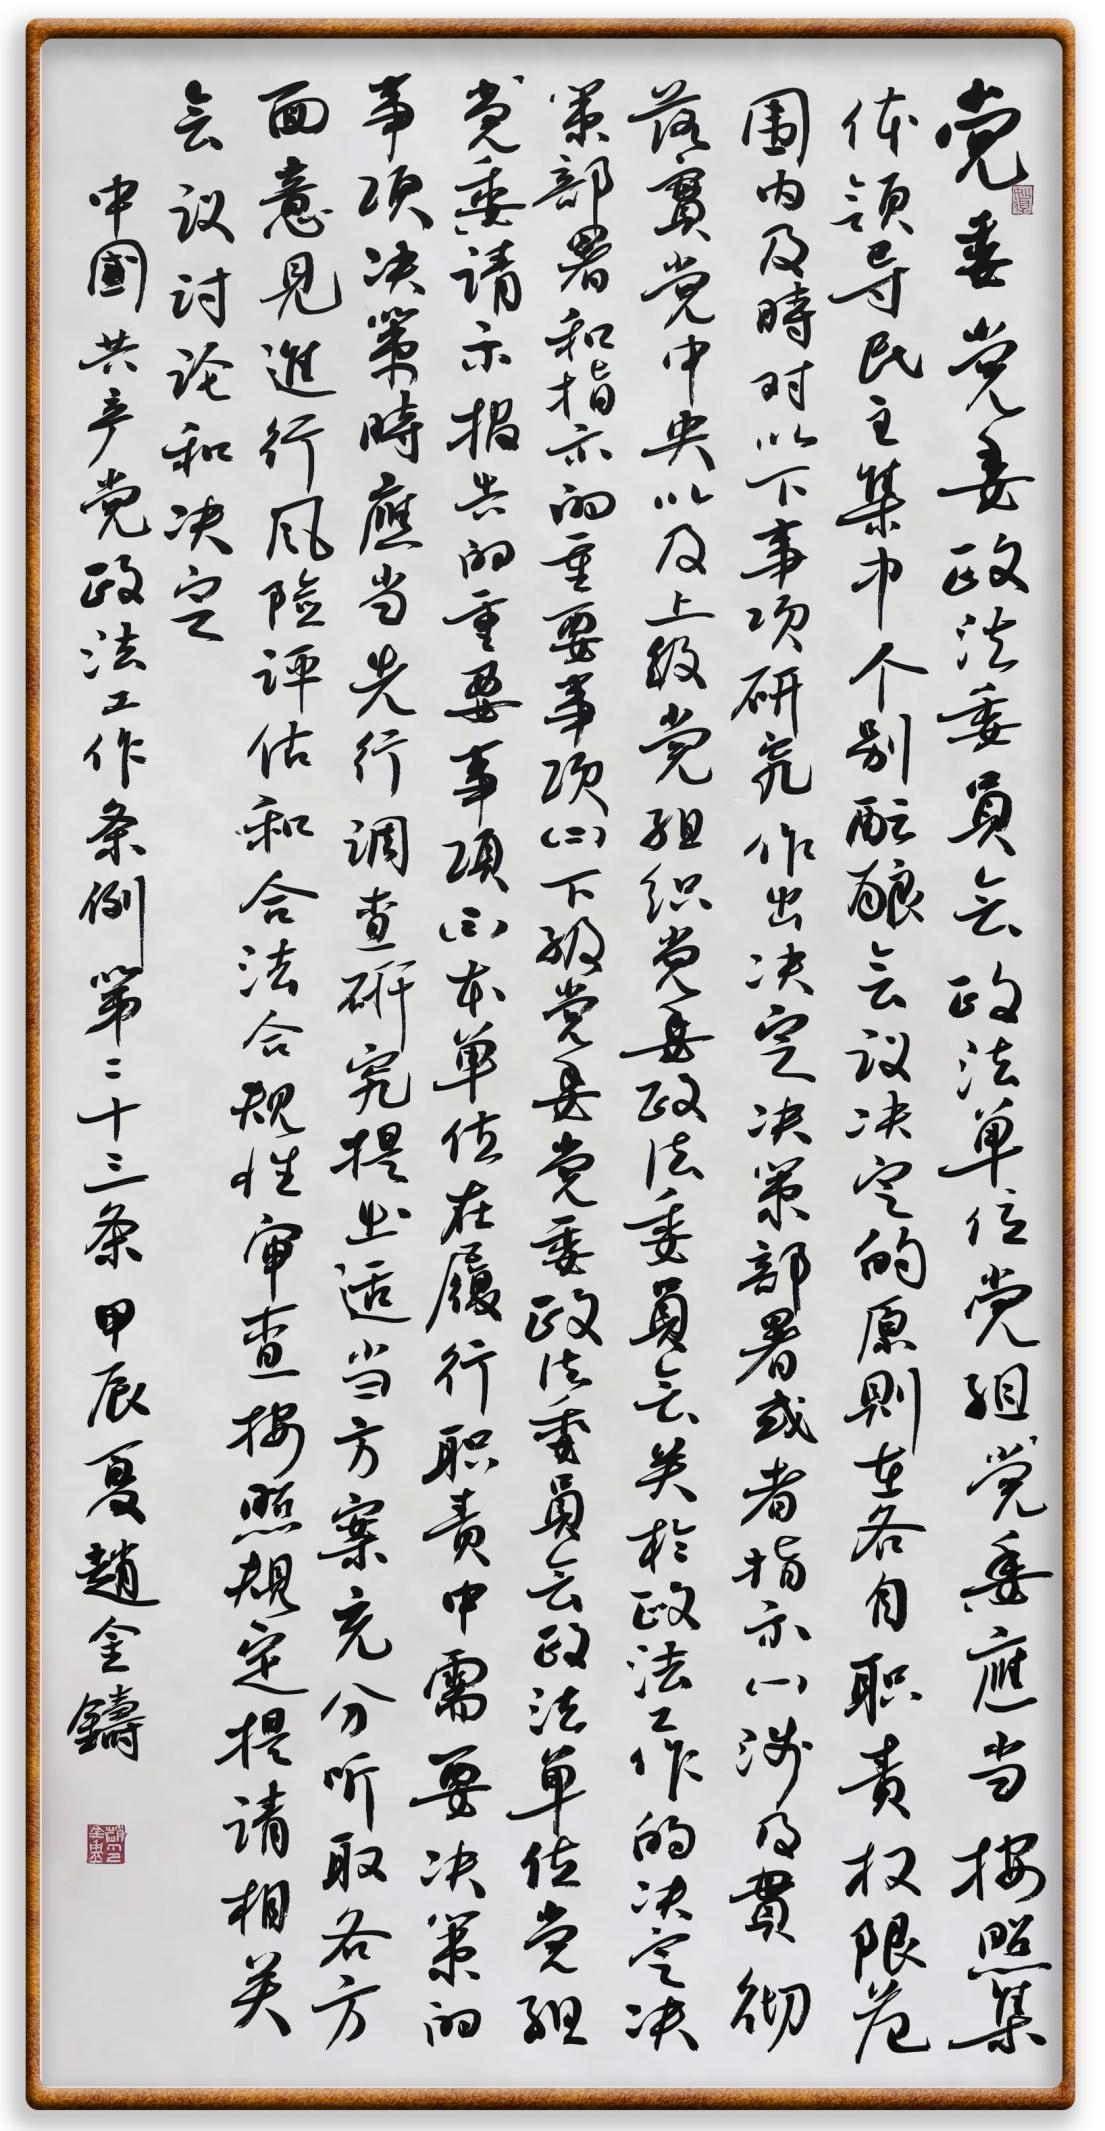 党委党委政法委員会政法单位党组党委應当按照集
体領导民主集中个别酝酿会议决定的原則在各自职责权限范
围内及時对以下事项研究作出决定决策部署或者指示(一)涉及貫彻
落實党中央以及上级党组织党委政法委員会关於政法工作的决定决
策部署和指示的重要事项(二)下级党委党委政法委員会政法单位党组
党委請示报告的重要事項(三)本单位在履行职责中需要决策的
事项决策時應当先行调查研究提出适当方案充分听取各方
面意見進行风险评估和合法合规性审查按照规定提请相关
会议讨论和决定
中國共产党政法工作条例第二十三条 甲辰夏趙金鑄